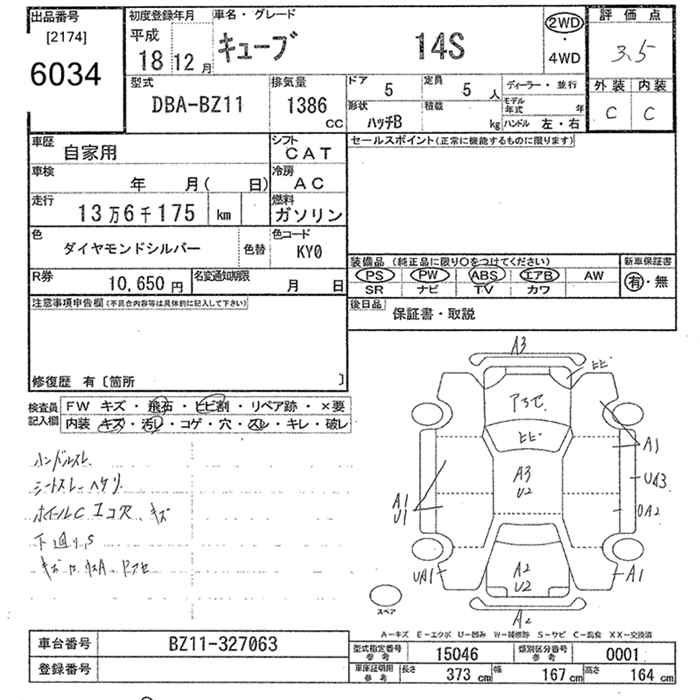 出品番号
[2174]
6034
初度登録年月
平成
18 12 月
車名・グレード
キューブ 14S
2WD
・
4WD
評価点
3.5
外装 内装
C C
型式
DBA-BZ11
排気量
1386
CC
ドア
5
定員
5 人
形状
ハッチB
積載
kg
ディーラー・並行
モデル年式 年
ハンドル 左・右
車歴
自家用
シフト
CAT
車検
年 月( 日)
冷房
AC
走行
13万6千175 km
燃料
ガソリン
色
ダイヤモンドシルバー
色替
色コード
KY0
R券
10,650 円
名変通知期限
月 日
セールスポイント(正常に機能するものに限ります)
装備品 (純正品に限り〇をつけてください)
PS PW ABS エアB AW
SR ナビ TV カワ
新車保証書
有・無
後日品
保証書・取説
注意事項申告欄(不具合内容等は具体的に記入して下さい)
修復歴 有〔箇所 〕
検査員記入欄
FW キズ・飛石・ヒビ割・リペア跡・×要
内装 キズ・汚レ・コゲ・穴・スレ・キレ・破レ
ハンドルスレ
シートスレ ヘタリ
ホイールC エコR、キズ
下廻りS
A3
ヒビ
ヒビ
A1
A3
U2
UA3
UA2
A1
U1
UA1
A2
U2
A1
A2
スペア
A-キズ E-エクボ U-凹み W-補修跡 S-サビ C-腐食 XX-交換済
車台番号
BZ11-327063
登録番号
型式指定番号
参考
15046
類別区分番号
参考
0001
車庫証明用
参考
長さ 373 cm
幅 167 cm
高さ 164 cm